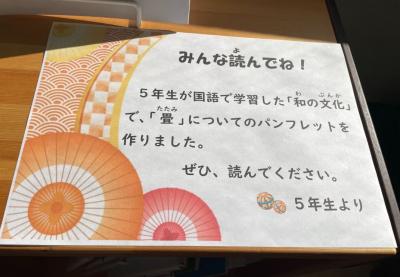 みんな読んでね！
5年生が国語で学習した「和の文化」
で、「畳」についてのパンフレットを
作りました。
ぜひ、読んでください。
5年生より